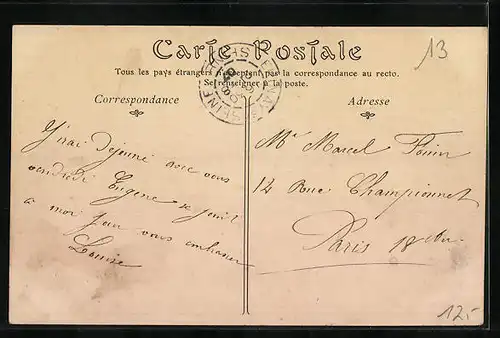 13
Carte Postale
Tous les pays étrangers n'acceptent pas la correspondance au recto.
Se renseigner à la poste.
Correspondance
Adresse
J'irai dejeuné avec vous
vendredi Eugene se
à moi vous embrasser
Louise
Mr Marcel
12 Rue Championnet
Paris 18
EPINAY S SEINE
12.-